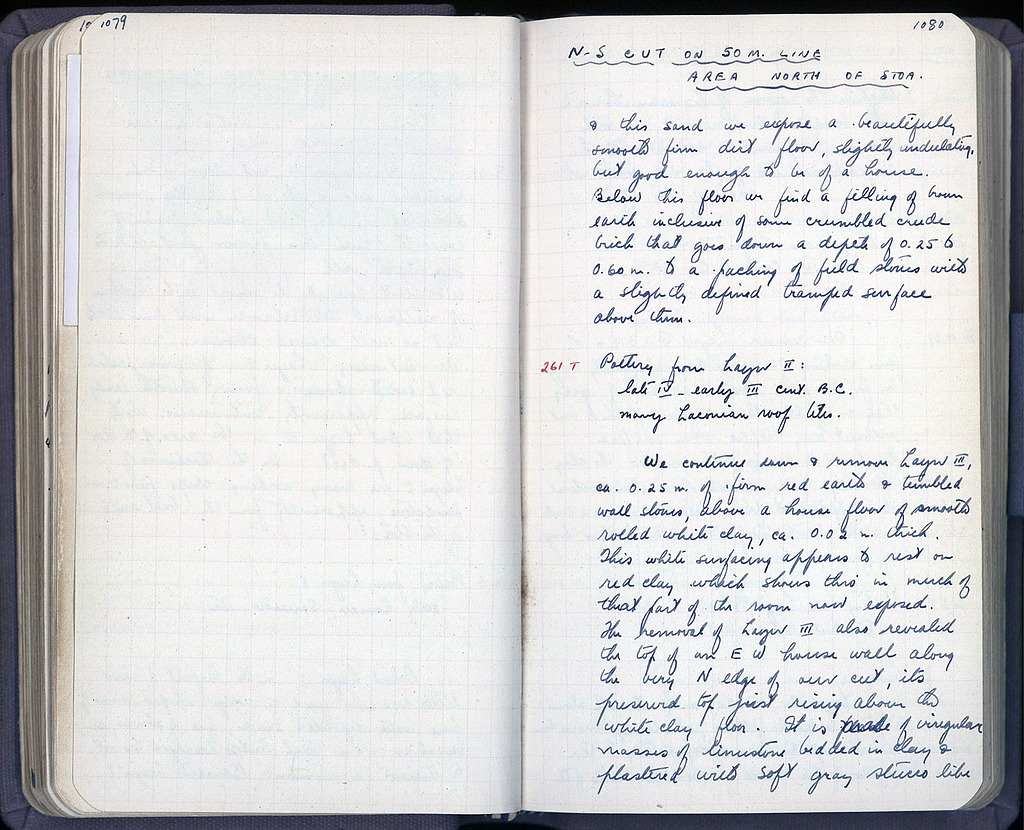 1079
1080
N-S CUT ON 50 M. LINE
AREA NORTH OF STOA.
& this sand we expose a beautifully
smooth firm dirt floor, slightly undulating,
but good enough to be of a house.
Below this floor we find a filling of brown
earth inclusive of some crumbled crude
brick that goes down a depth of 0.25 to
0.60 m. to a packing of field stones with
a slightly defined tramped surface
above them.
261 T Pottery from Layer II:
late IV - early III cent. B.C.
many Laconian roof tiles.
We continue down & remove Layer III,
ca. 0.25 m. of firm red earth & tumbled
wall stones, above a house floor of smooth
rolled white clay, ca. 0.02 m. thick.
This white surfacing appears to rest on
red clay which shows thro in much of
that part of the room now exposed.
The removal of Layer III also revealed
the top of an E W house wall along
the very N edge of our cut, its
preserved top just rising above the
white clay floor. It is of irregular
masses of limestone bedded in clay &
plastered with soft gray stucco like